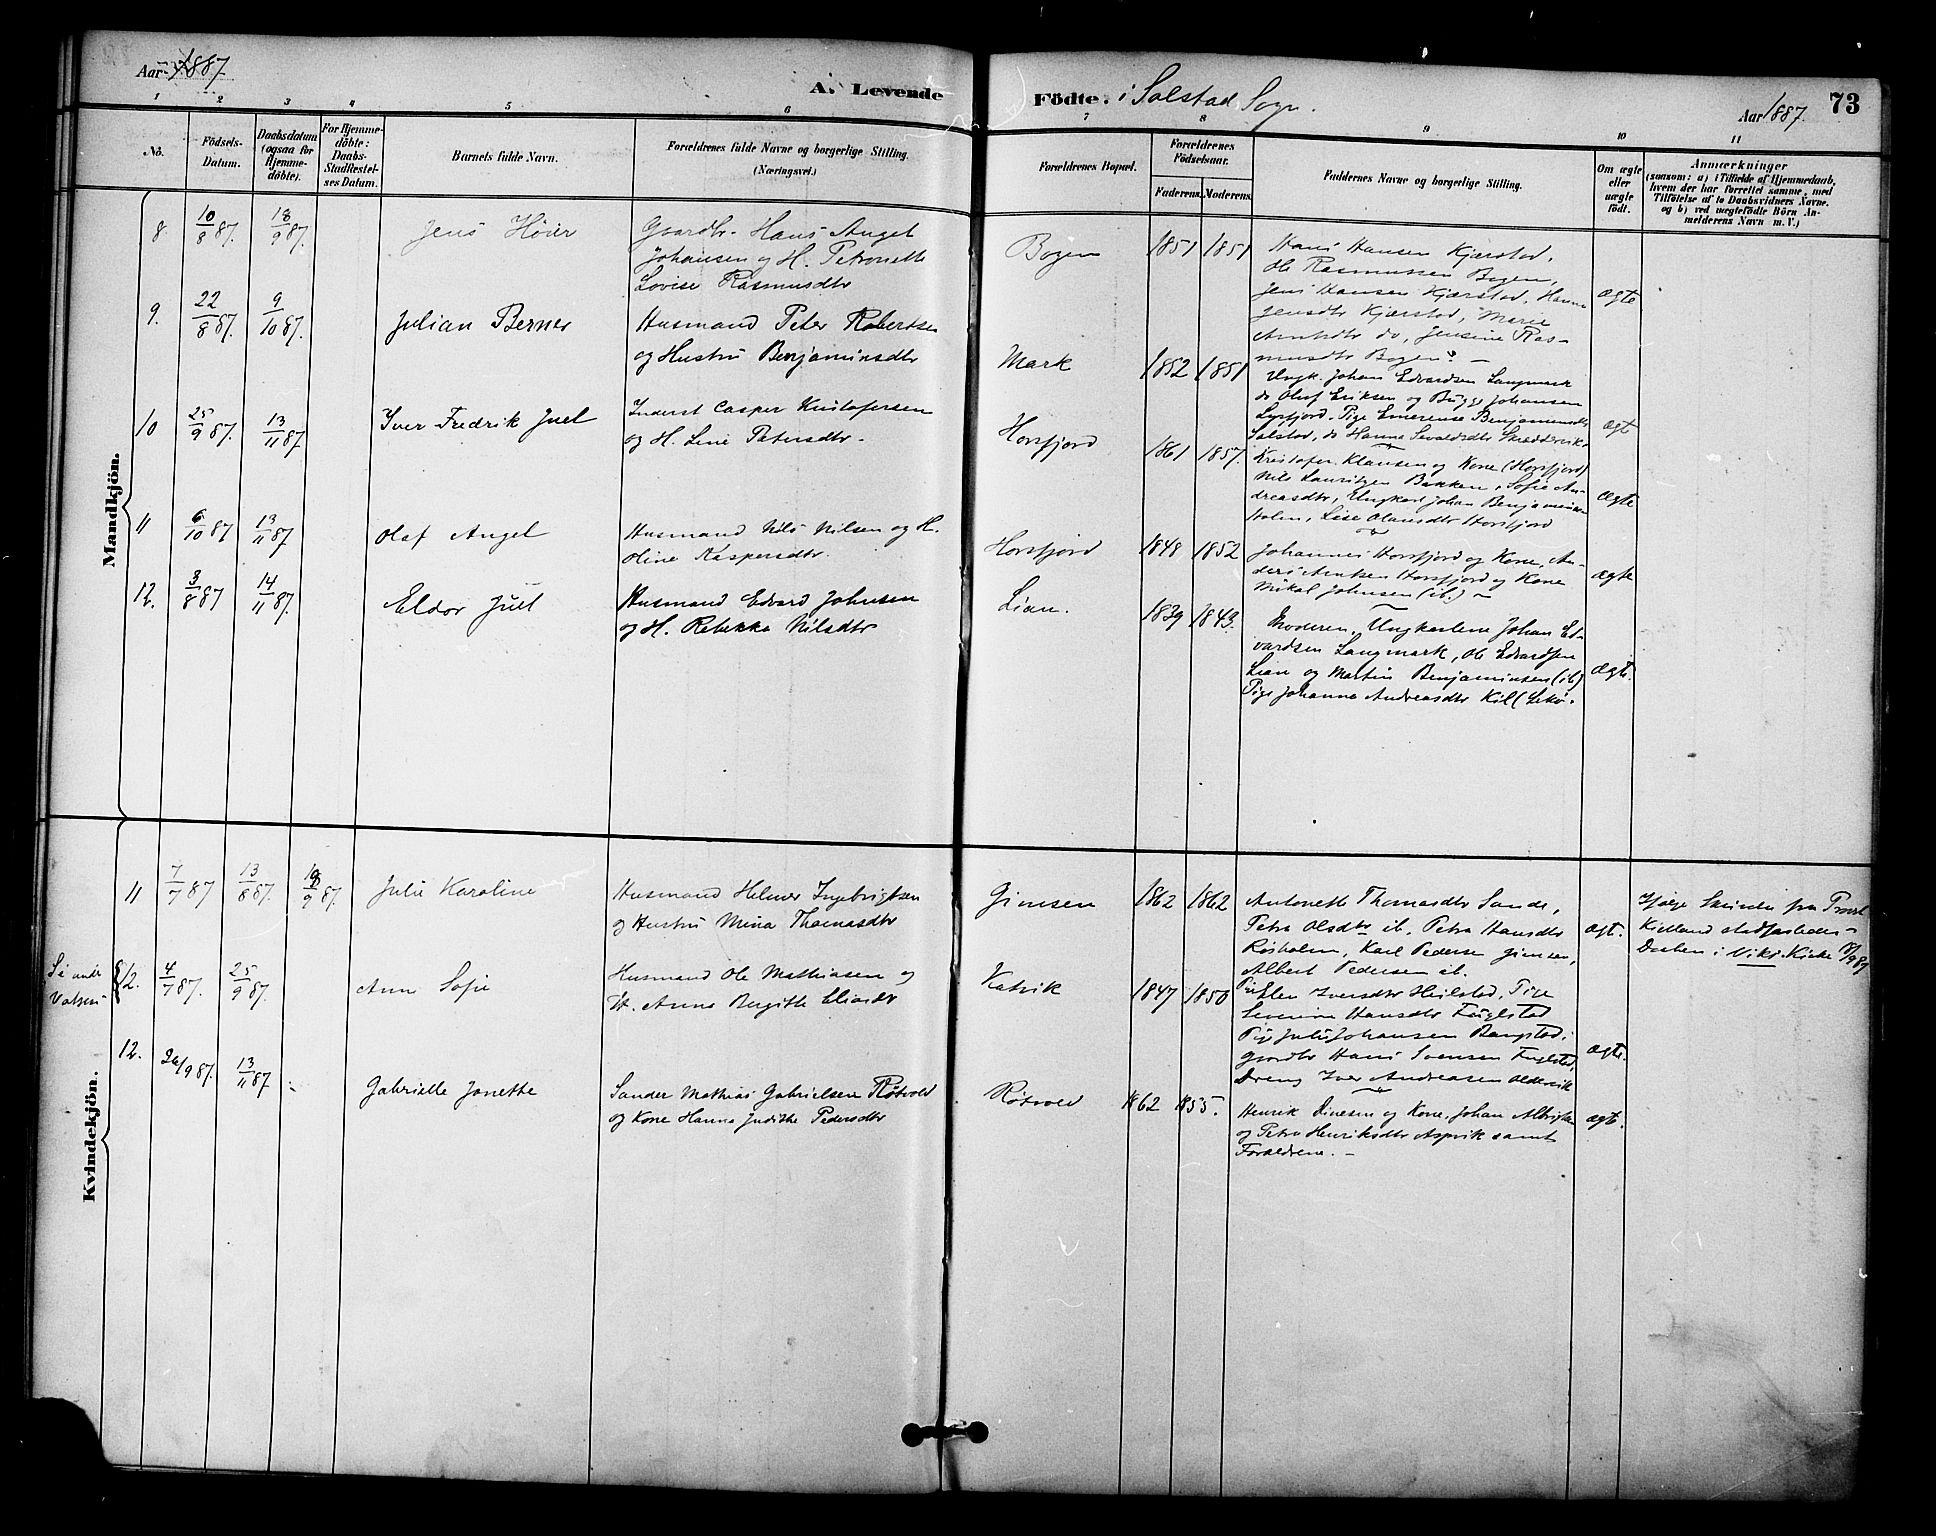 Aar 1887.
A. Levende
Födte. i Solstad Sogn.
Aar 1887.
73
1 2 3 4 5 6 7 8 9 10 11
No.
Födsels-Datum.
Daabsdatum (ogsaa for Hjemme-döbte).
For Hjemme-döbte: Daabs-Stadfæstel-ses Datum.
Barnets fulde Navn.
Forældrenes fulde Navne og borgerlige Stilling. (Næringsvei.)
Forældrenes Bopæl.
Forældrenes Födselsaar.
Faderens. Moderens.
Faddernes Navne og borgerlige Stilling.
Om ægte eller uægte födt.
Anmærkninger
(saasom: a) i Tilfælde af Hjemmedaab,
hvem der har forrettet samme, med
Tilföielse af to Daabsvidners Navne.
og b) ved uægtefödte Börn An-
melderens Navn m. V.)
Mandkjön.
8. 10/8 87. 18/9 87. Jens Höier
Gaardbr. Hans Angel
Johansen og H. Petronelle
Lovise Rasmusdtr
Bogen 1851 1851
Hans Hansen Kjærstad,
Ole Rasmussen Bogen,
Jens Hansen Kjærstad, Hanna
Jensdtr Kjærstad, Marie
Arntsdtr do, Jensine Ras-
musdtr Bogen. –
ægte
9. 22/8 87. 9/10 87. Julian Berner
Husmand Peter Robertsen
og Hustru Benjaminsdtr
Mark 1852 1851
Ungk. Johan Edvardsen Langmark
do Oluf Eriksen og Bugge Johansen
Lysfjord. Pige Emerense Benjaminsdtr
Solstad, do Hanna Sevaldsdtr Skreddervik.
ægt
10 25/9 87. 13/11 87. Iver Fredrik Juel
Inderst Casper Kristofersen
og H. Line Petersdtr.
Horsfjord 1861 1857.
Kristofer Klausen og Kone (Horsfjord)
Nils Lauritzen Bakken, Sofie An-
dreasdtr, Ungkarl Johan Benjaminsen
Holm, Lise Olausdtr Horsfjord
ægte
11 6/10 87 13/11 87 Olaf Angel
Husmand Nils Nilsen og H.
Oline Kaspersdtr.
Horsfjord 1848 1852
Johannes Horsfjord og Kone, An-
ders Arntsen Horsfjord og Kone
Mikal Johnsen (ib.) –
ægte
12. 3/8 87 14/11 87. Eldor Juel
Husmand Edvard Johnsen
og H. Rebekka Nilsdtr
Lian. 1839 1843.
Moderen, Ungkarlene Johan Ed-
vardsen Langmark, Ole Edvardsen
Lian og Martin Benjaminsen (ib)
Pige Johanna Andreasdtr Kil (Lekø.
ægte.
Kvindekjön.
11 7/7 87 13/8 87. 18/9 87. Julie Karoline
Husmand Helmer Ingebrigtsen
og Hustru Mina Thomasdtr
Gimsen 1862 1862
Antonette Thomasdtr Sande,
Petra Olsdtr ib. Petra Hansdtr
Røsholm, Karl Pedersen Gimsen,
Albert Pedersen ib.
ægt.
Ifølge Skrivelse fra Provst
Kielland stadfæstedes
Daaben i Viks Kirke 18/9 87
12. 4/7 87. 25/9 87. Ann Sofie
Husmand Ole Mathiasen og
H. Anna Bergitte Eliasdtr
Kalvik 1847 1850
Ellen Iversdtr Heilstad, Pige
Severine Hansdtr Fuglstad
Pige Julie Johansen Bangstad.
Gaardbr Hans Svensen Fuglstad,
Dreng Iver Andreasen Oldervik
ægte.
12. 26/9 87. 13/11 87 Gabrielle Jonette
Sander Mathias Gabrielsen Røtvold
og Kone Hanna Judithe Pedersdtr
Røtvold 1862 1855.
Henrik Dinesen og Kone, Johan Albrigtsen
og Petra Henriksdtr Aspvik samt
Forældrene. –
ægt.